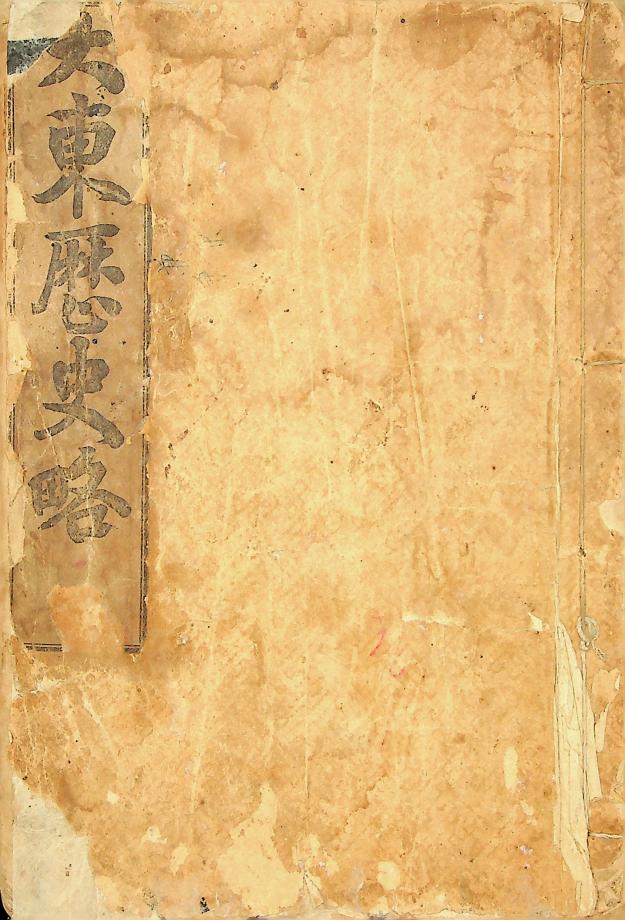 大東歷史略